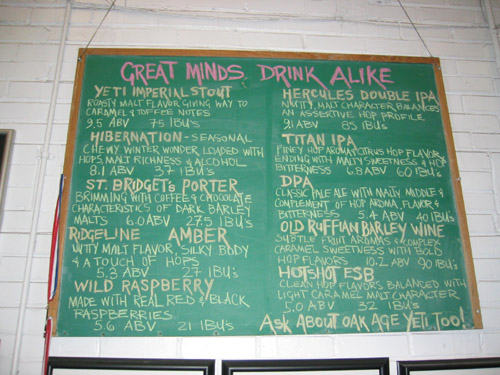 GREAT MINDS DRINK ALIKE
YETI IMPERIAL STOUT
ROASTY MALT FLAVOR GIVING WAY TO
CARAMEL & TOFFEE NOTES
9.5 ABV 75 IBU'S
HIBERNATION - SEASONAL
CHEWY WINTER WONDER LOADED WITH
HOPS, MALT RICHNESS & ALCOHOL
8.1 ABV 37 IBU'S
ST. BRIDGET'S PORTER
BRIMMING WITH COFFEE & CHOCOLATE
CHARACTERISTICS OF DARK BARLEY
MALTS 6.0 ABV 27.5 IBU'S
RIDGELINE AMBER
NUTTY MALT FLAVOR, SILKY BODY
& A TOUCH OF HOPS
5.3 ABV 27 IBU'S
WILD RASPBERRY
MADE WITH REAL RED & BLACK
RASPBERRIES
5.6 ABV 21 IBU'S
HERCULES DOUBLE IPA
NUTTY, MALT CHARACTER BALANCES
AN ASSERTIVE HOP PROFILE
ABV 85 IBU'S
TITAN IPA
PINEY HOP AROMA, CITRUS HOP FLAVOR
ENDING WITH MALTY SWEETNESS & HOP
BITTERNESS 6.8 ABV 60 IBU'S
DPA
CLASSIC PALE ALE WITH MALTY MIDDLE &
COMPLEMENT OF HOP AROMA, FLAVOR &
BITTERNESS 5.4 ABV 40 IBU'S
OLD RUFFIAN BARLEY WINE
SUBTLE FRUIT AROMAS & COMPLEX
CARAMEL SWEETNESS WITH BOLD
HOP FLAVORS 10.2 ABV 90 IBU'S
HOTSHOT ESB
CLEAN HOP FLAVORS BALANCED WITH
LIGHT CARAMEL MALT CHARACTER
5.0 ABV 32 IBU'S
ASK ABOUT OAK AGE YETI, TOO!